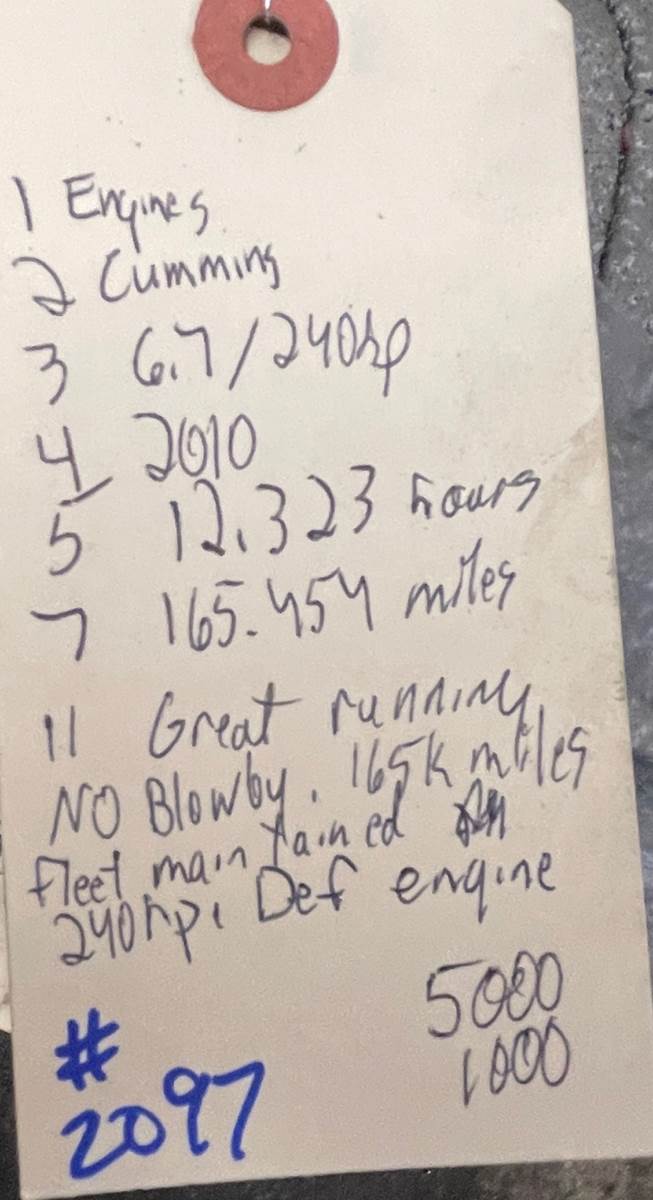 1 Engines
2 Cummins
3 6.7/240hp
4 2010
5 12,323 hours
7 165.454 miles
11 Great running
NO Blowby. 165k miles
fleet maintained
240hp. Def engine
5000
1000
#
2097